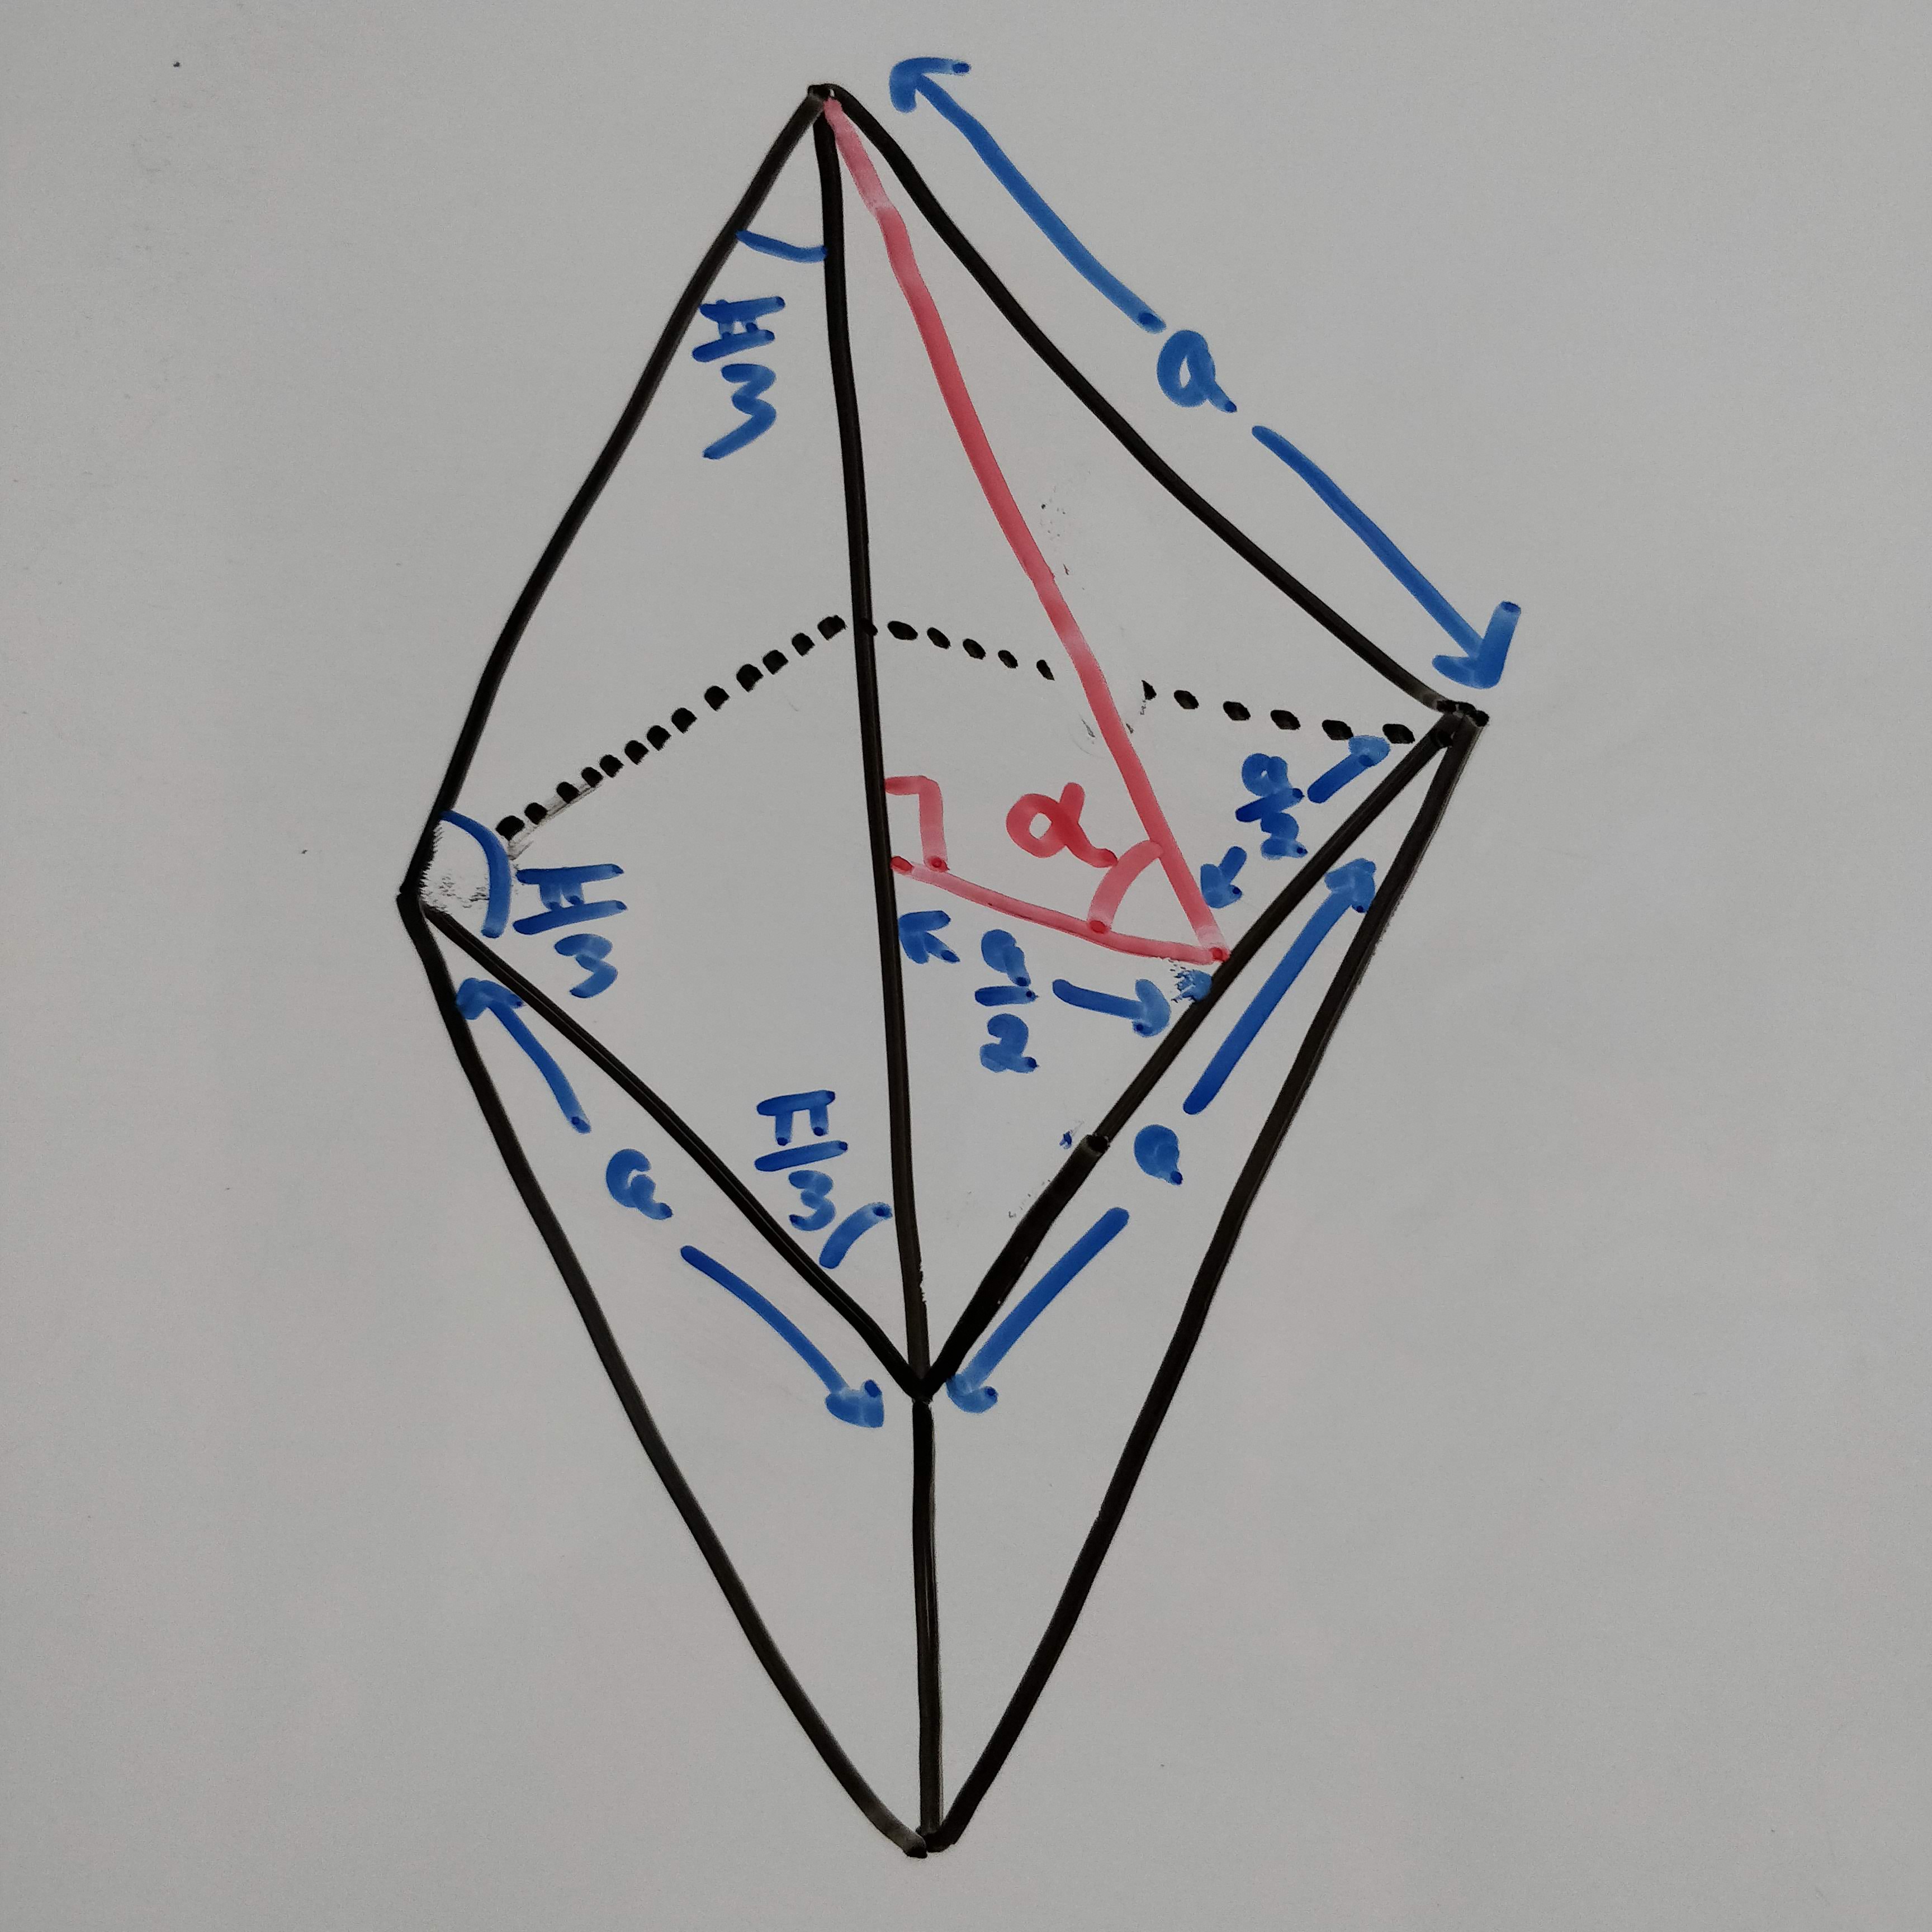 a
π/3
a/2
α
π/3
a/2
π/3
a
a